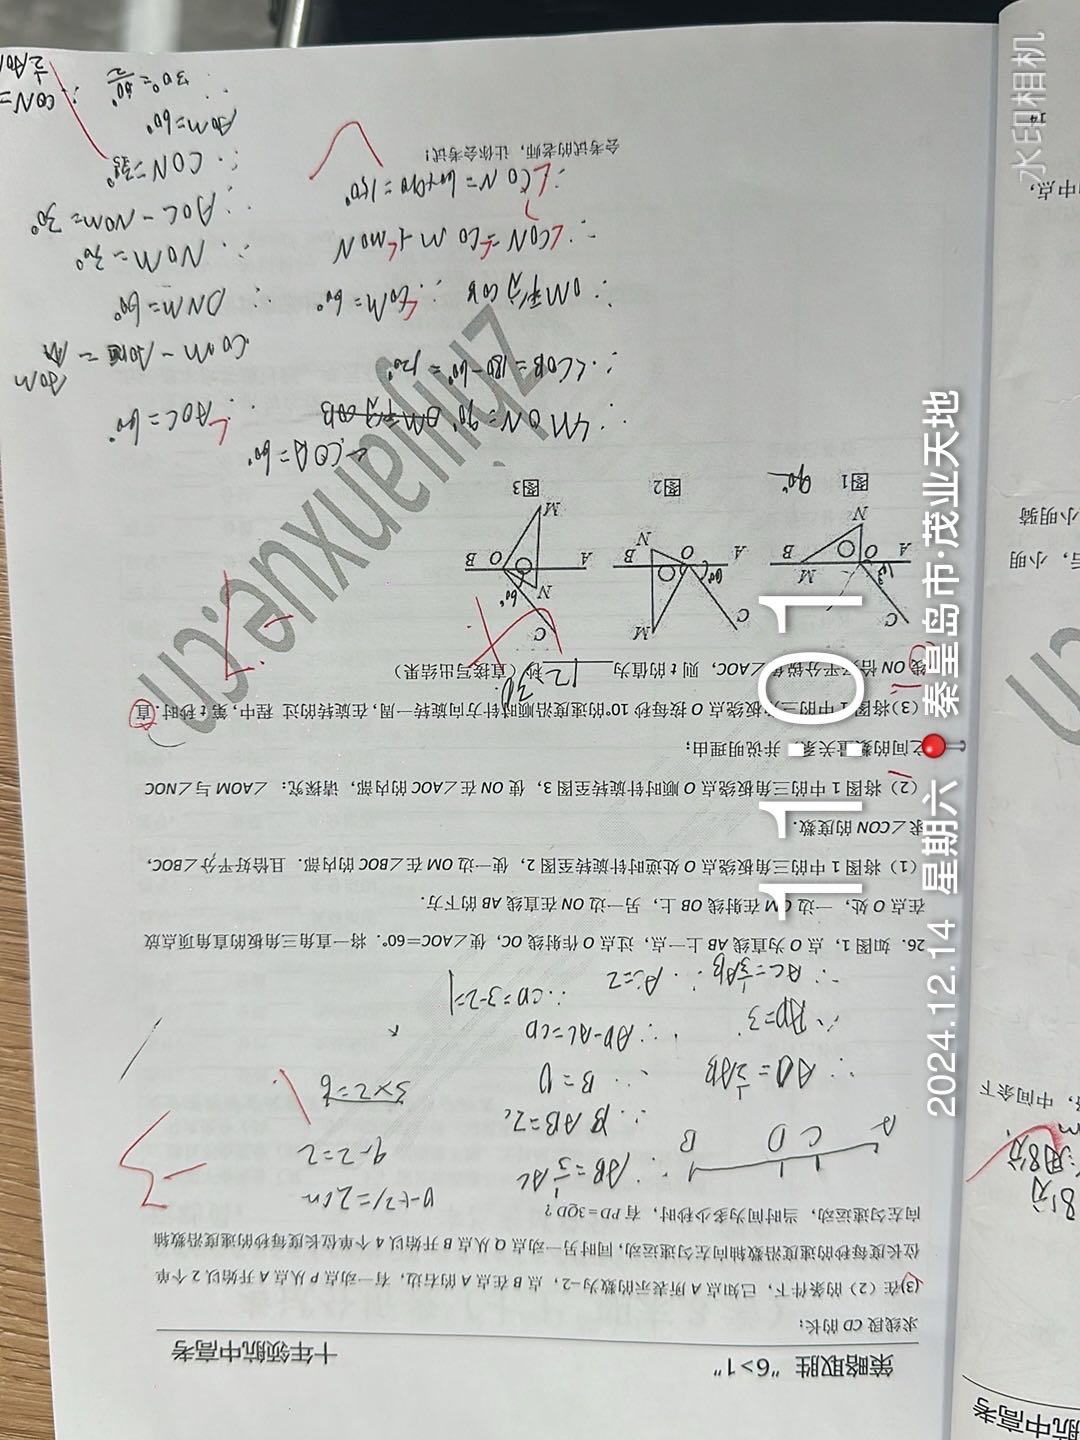 策略取胜 "6>1"
十年领航中高考
求线段 CD 的长;
(3)在（2）的条件下，已知点 A 所表示的数为-2，点 B 在点 A 的右边，有一动点 P 从点 A 开始以 2 个单
位长度每秒的速度沿数轴向左匀速运动,同时另一动点 Q 从点 B 开始以 4 个单位长度每秒的速度沿数轴
向左匀速运动，当时间为多少秒时，有 PD=3QD？
∴ AB=
AC
AB=2
∴ B=D
4-2=2
3×2=6
∴ AD=½AB
∴ AD=3
∴ AD-AC=CD
∴ AC=⅓AB
∴ AC=2
∴ CD=3-2=1
B D C A
26. 如图 1，点 O 为直线 AB 上一点，过点 O 作射线 OC，使∠AOC=60°. 将一直角三角板的直角顶点放
在点 O 处，一边 OM 在射线 OB 上，另一边 ON 在直线 AB 的下方.
（1）将图 1 中的三角板绕点 O 处逆时针旋转至图 2，使一边 OM 在∠BOC 的内部. 且恰好平分∠BOC，
求∠CON 的度数.
（2）将图 1 中的三角板绕点 O 顺时针旋转至图 3，使 ON 在∠AOC 的内部，请探究：∠AOM 与∠NOC
之间的数量关系，并说明理由;
（3)将图 1 中的三角板绕点 O 按每秒 10°的速度沿顺时针方向旋转一周,在旋转的过 程中,第 t 秒时,直
线 ON 恰好平分锐角∠AOC，则 t 的值为 12 30 秒（直接写出结果）
C A O M B N
图1
90°
C A O B N M
60°
图2
C N A O B M
60°
图3
∠COA=60°
∴ ∠MON=90°
∴ ∠COB=180-60°=120°
∴ OM平分COB ∴ ∠COM=60°
∴ ∠CON=∠COM+∠MON
∴ ∠CON=60+90=150°
∴ ∠AOC=60°
∴ NOM=30°
∴ AOC-NOM=30°
∴ CON=
AOM=60°
∴ CON=½AOM
会考试的老师，让你会考试!
zhijianxue.cn
11:01
2024.12.14 星期六 秦皇岛市·茂业天地
水印相机
14
中点,
小明骑
小明
中间余下
航中高考